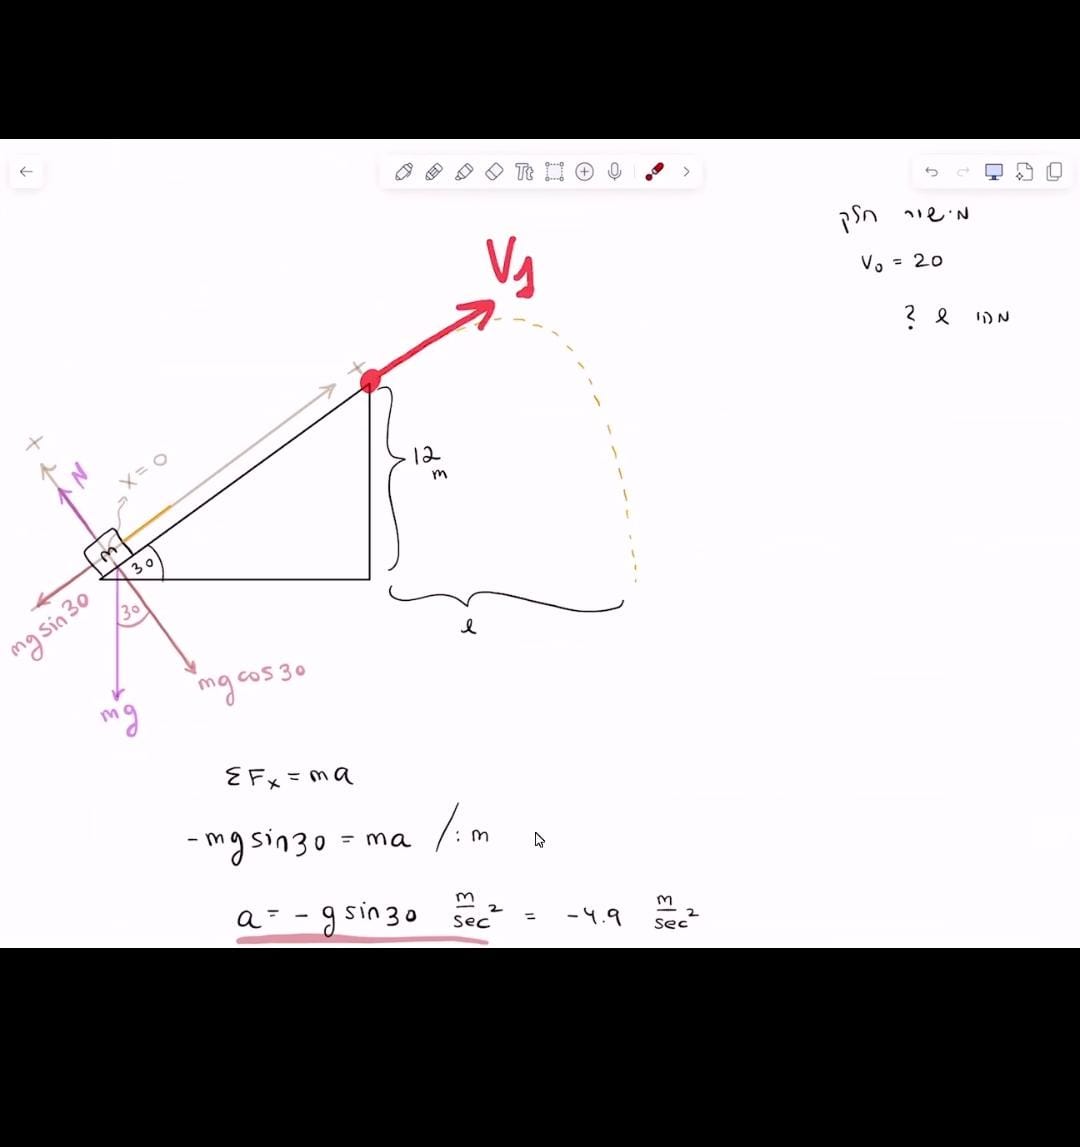 מישור חלק
V₀ = 20
מהי l ?
V₁
x
12
m
x
N
x=0
m
30
mg sin30
30
l
mg cos30
mg
ΣFx = ma
-mg sin30 = ma /: m
a = - g sin30 m/sec² = -4.9 m/sec²